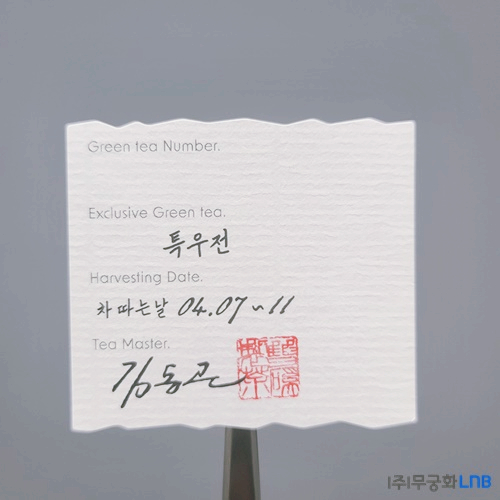 Green tea Number.
Exclusive Green tea.
특우전
Harvesting Date.
차 따는날 04.07~11
Tea Master.
김동곤
(주)무궁화LNB